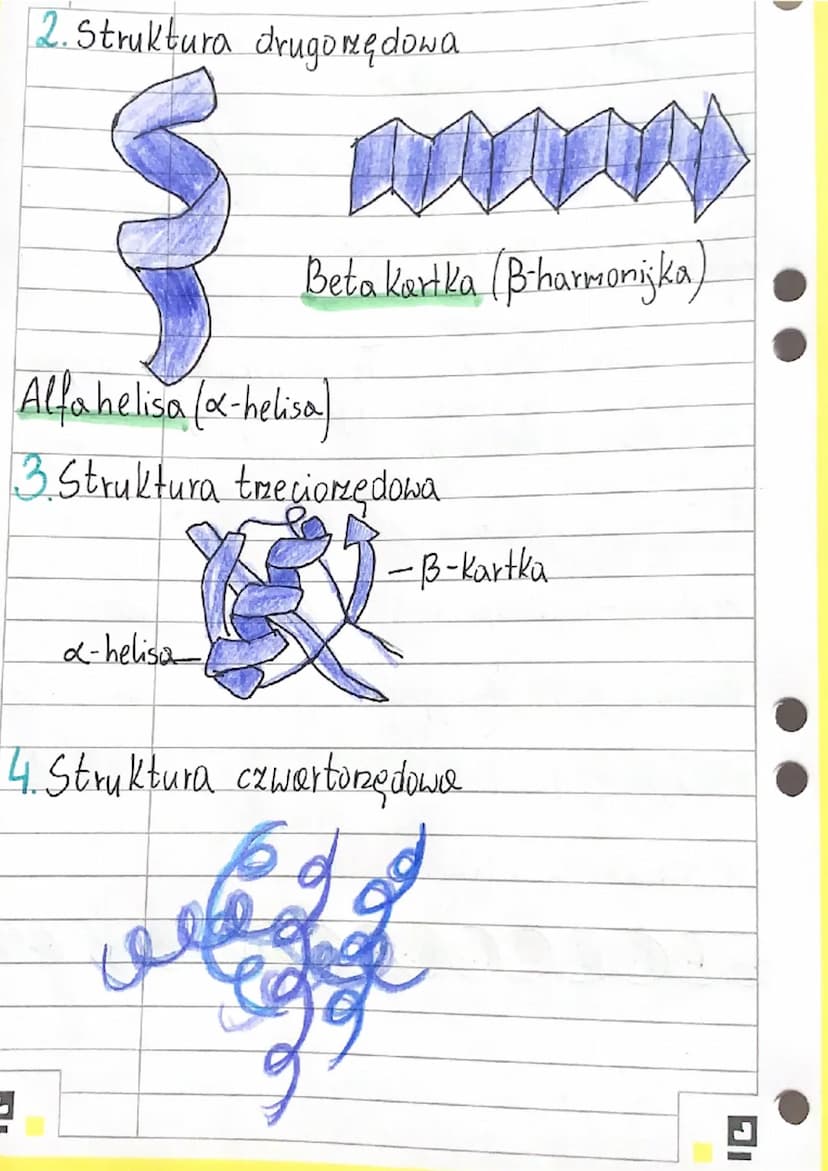 2. Struktura drugorzędowa
Beta kartka (β-harmonijka)
Alfa helisa (α-helisa)
3. Struktura trzeciorzędowa
- β-kartka
α-helisa
4. Struktura czwartorzędowa